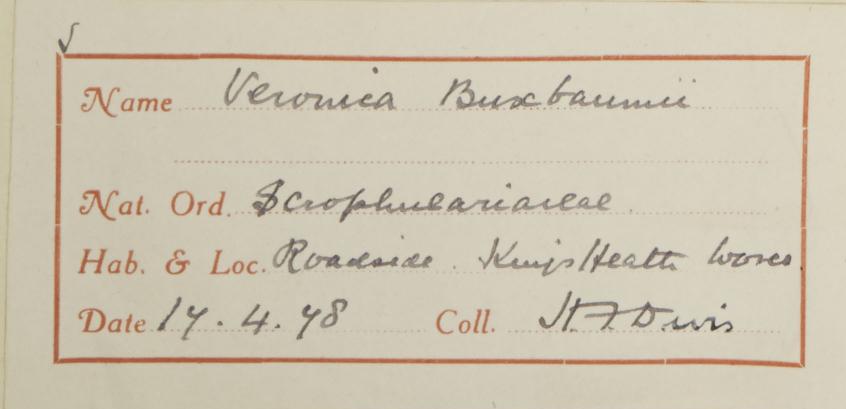 Name Veronica Buxbaumii
Nat. Ord. Scrophulariaceae
Hab. & Loc. Roadside. Kings Heath Worcs.
Date 17.4.98 Coll.